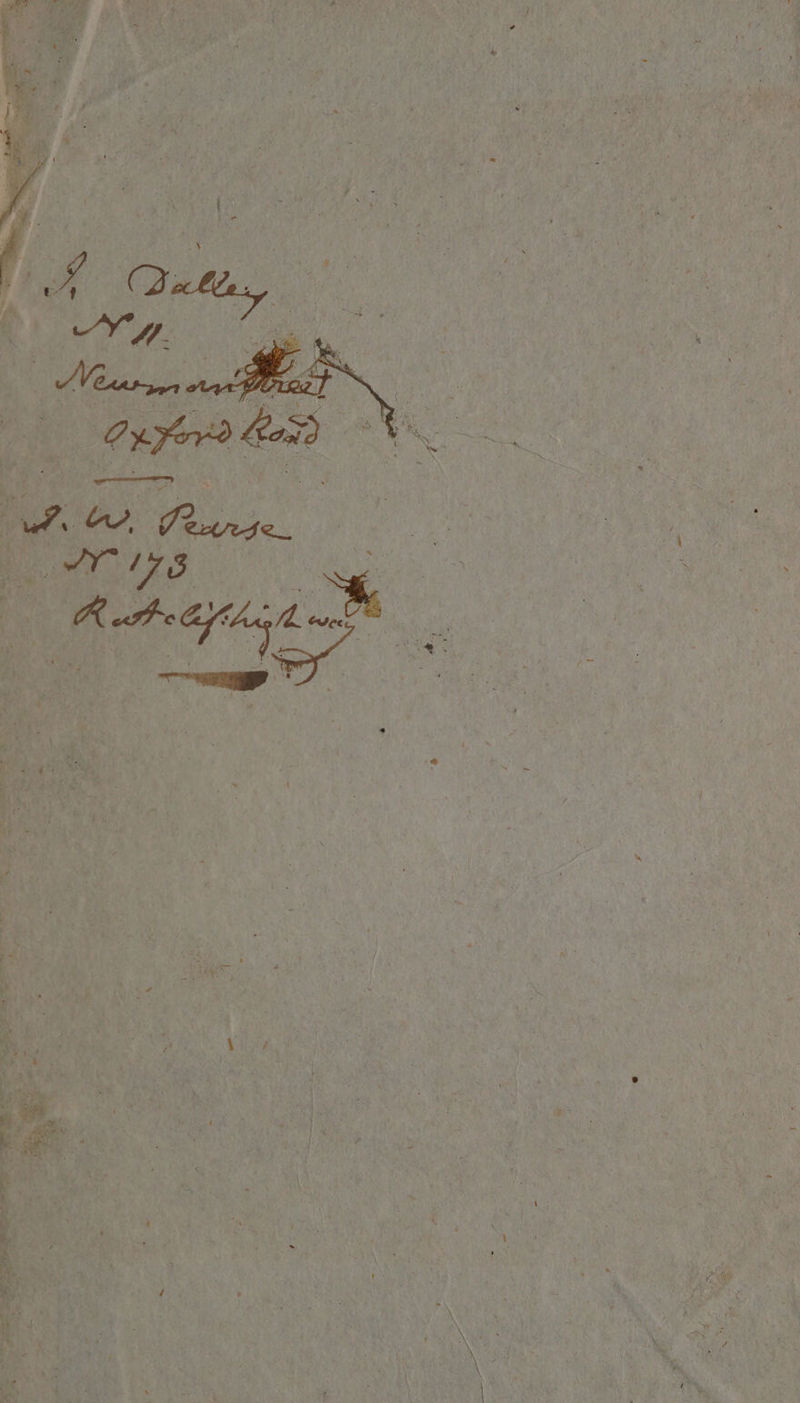 J Dalley
N 11.
Newman Street
Oxford Road
J. W. Pearse
N 173
Ratclif high way